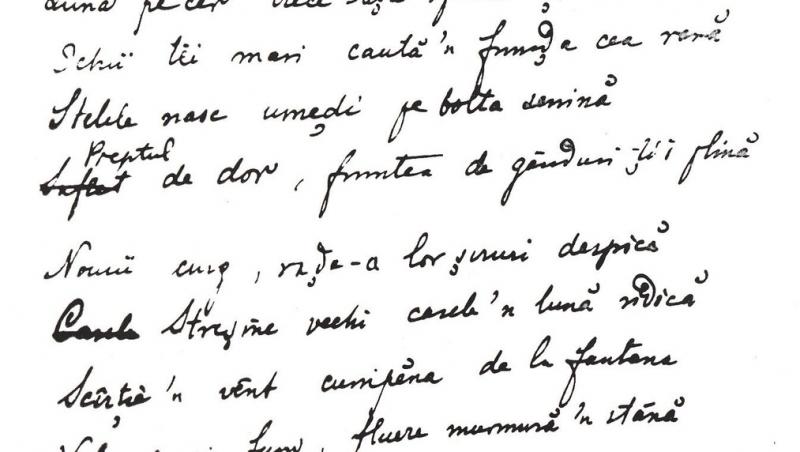 Luna pe cer trece
Ochii tĕi mari caută'n frunḑa cea rară
Stelele nasc umeḑi pe bolta senină
Pieptul
Suflet de dor, fruntea de gânduri ți-i plină
Nourii curg, raḑe-a lor șiruri despică
Casele Streșine vechi casele'n lună ridică
Scîrție'n vênt cumpĕna de la fantana
fum, fluere murmură'n stână